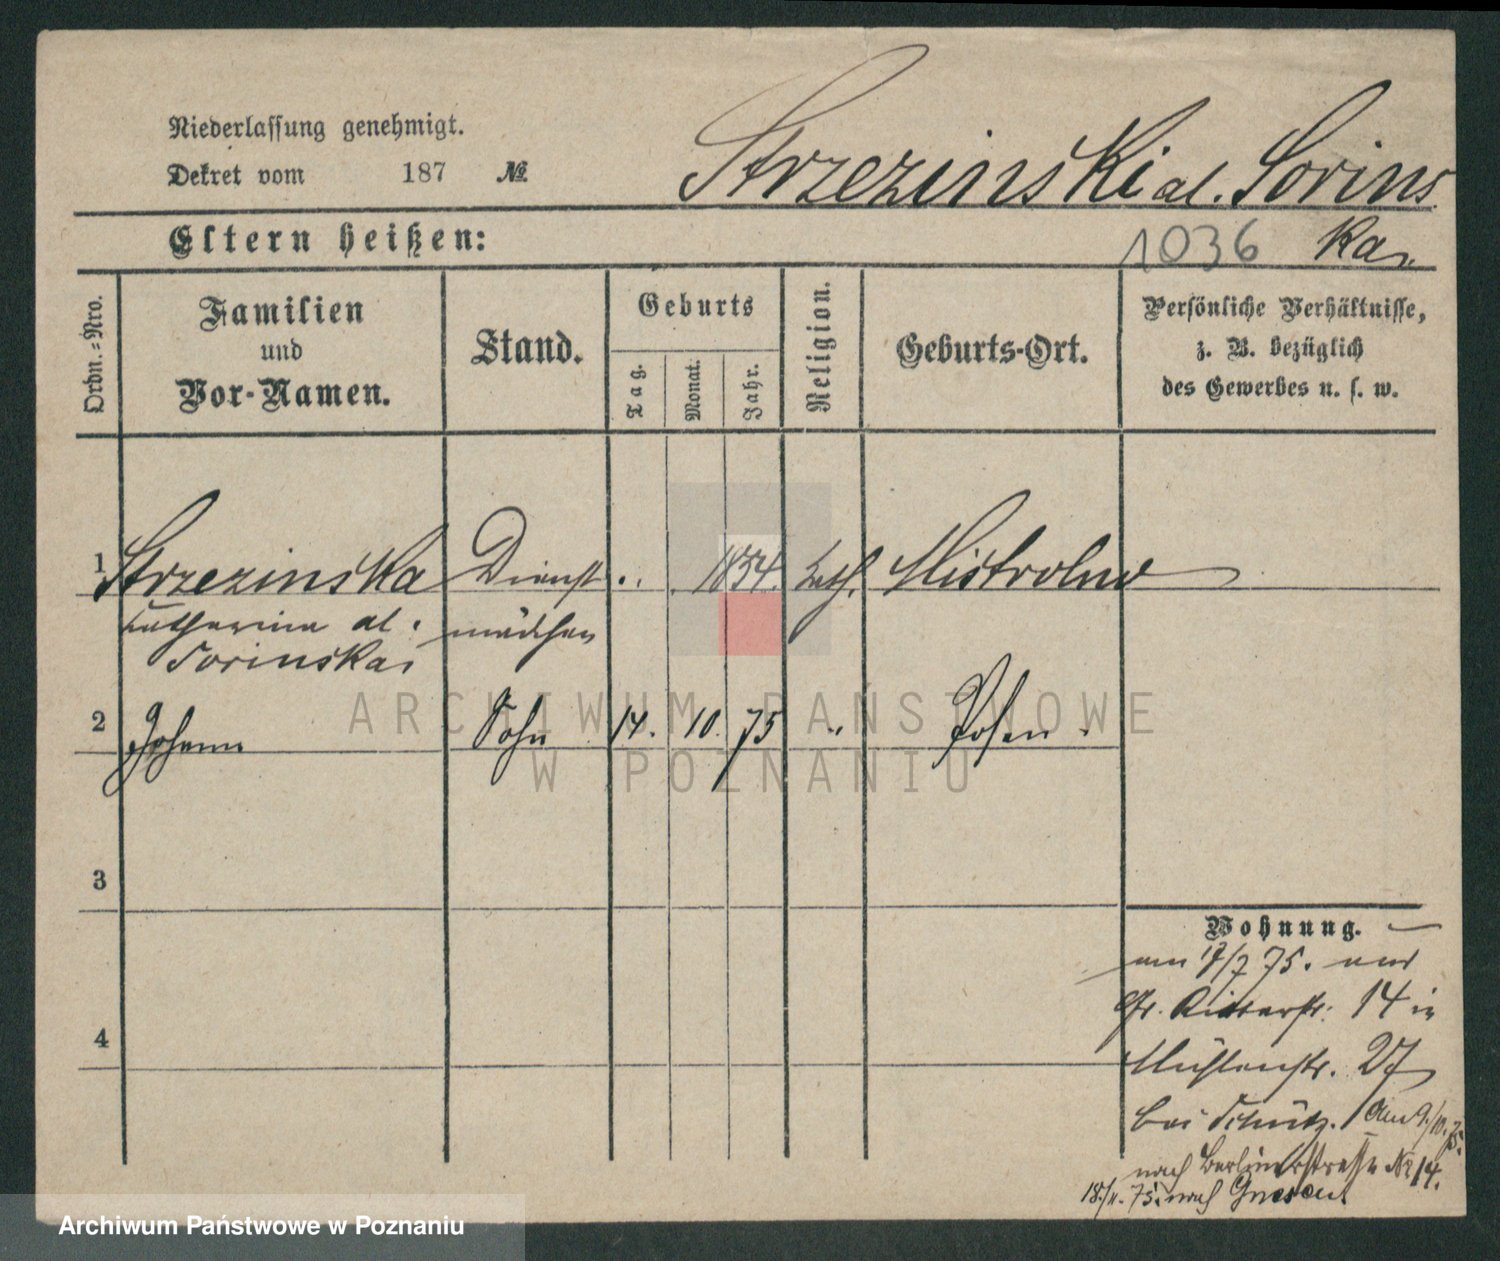 Niederlassung genehmigt.
Dekret vom 187 №
Strzezinski al. Sorins
ka,
1036
Eltern heißen:
Ordn.-Nro.
Familien
und
Vor-Namen.
Stand.
Geburts
Tag.
Monat.
Jahr.
Religion.
Geburts-Ort.
Persönliche Verhältnisse,
z. B. bezüglich
des Gewerbes u. s. w.
1 Strzezinska Dienst " 1854. kath. Mistrolno
Catharina al. mädchen
Sorinska,
2 Johann Sohn 14. 10. 75 " Posen.
3
4
Wohnung.
75. aus
Gr. Ritterstr. 14 in
Mühlenstr. 27
bei Schütz. Am 9/10. 75.
nach Berlinerstrasse № 14.
18/11. 75. nach Gnesen.
ARCHIWUM PAŃSTWOWE
W POZNANIU
Archiwum Państwowe w Poznaniu